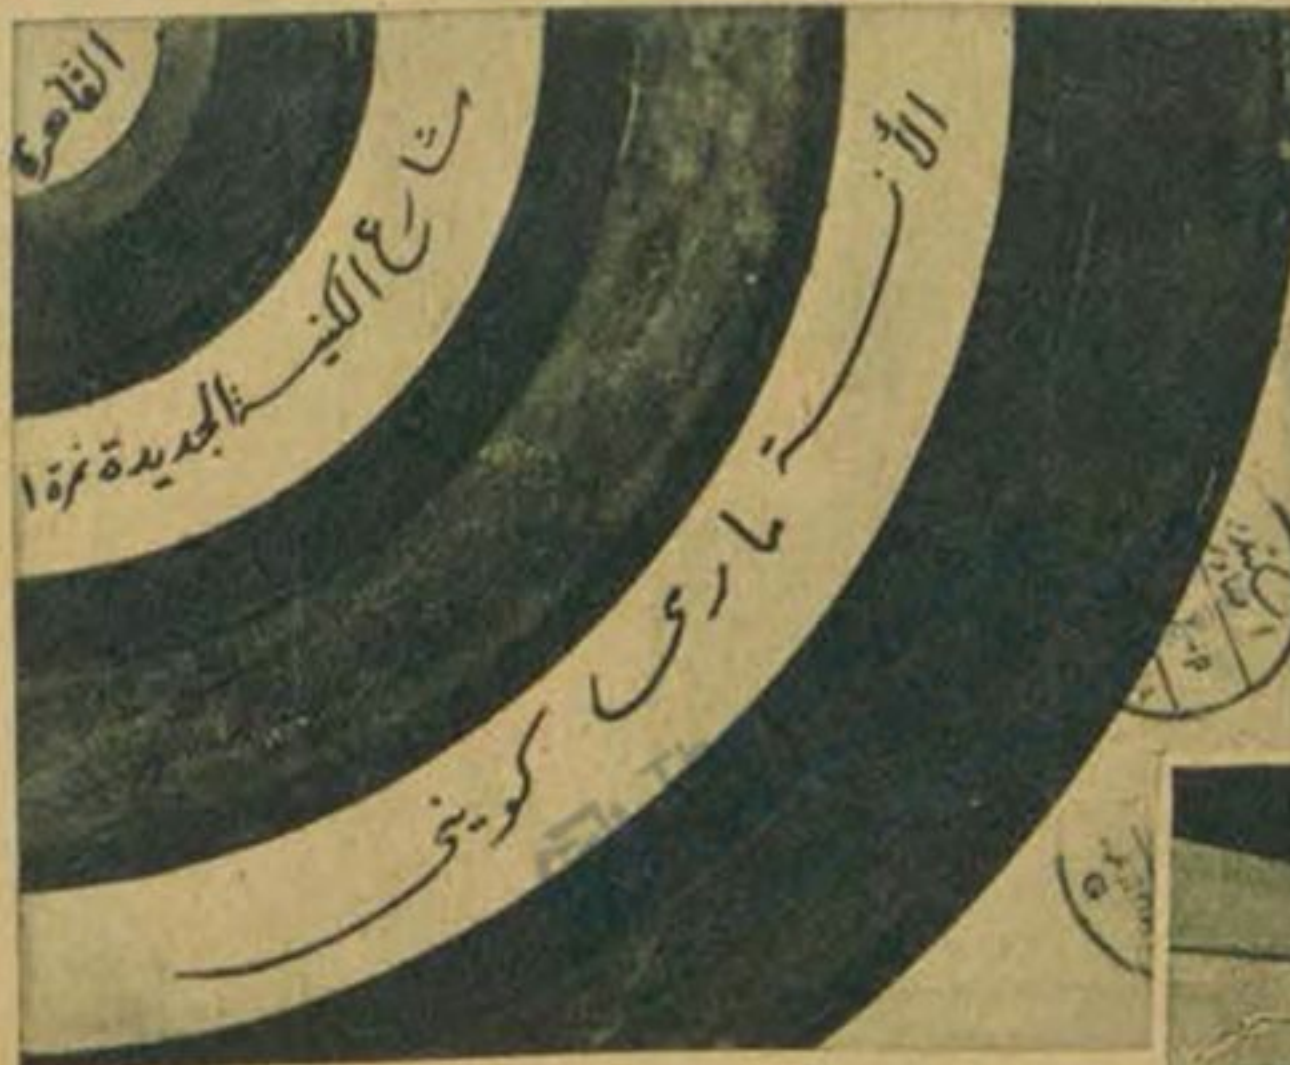 الآنسة ماري كويني
شارع الكنيسة الجديدة نمرة ١
القاهرة